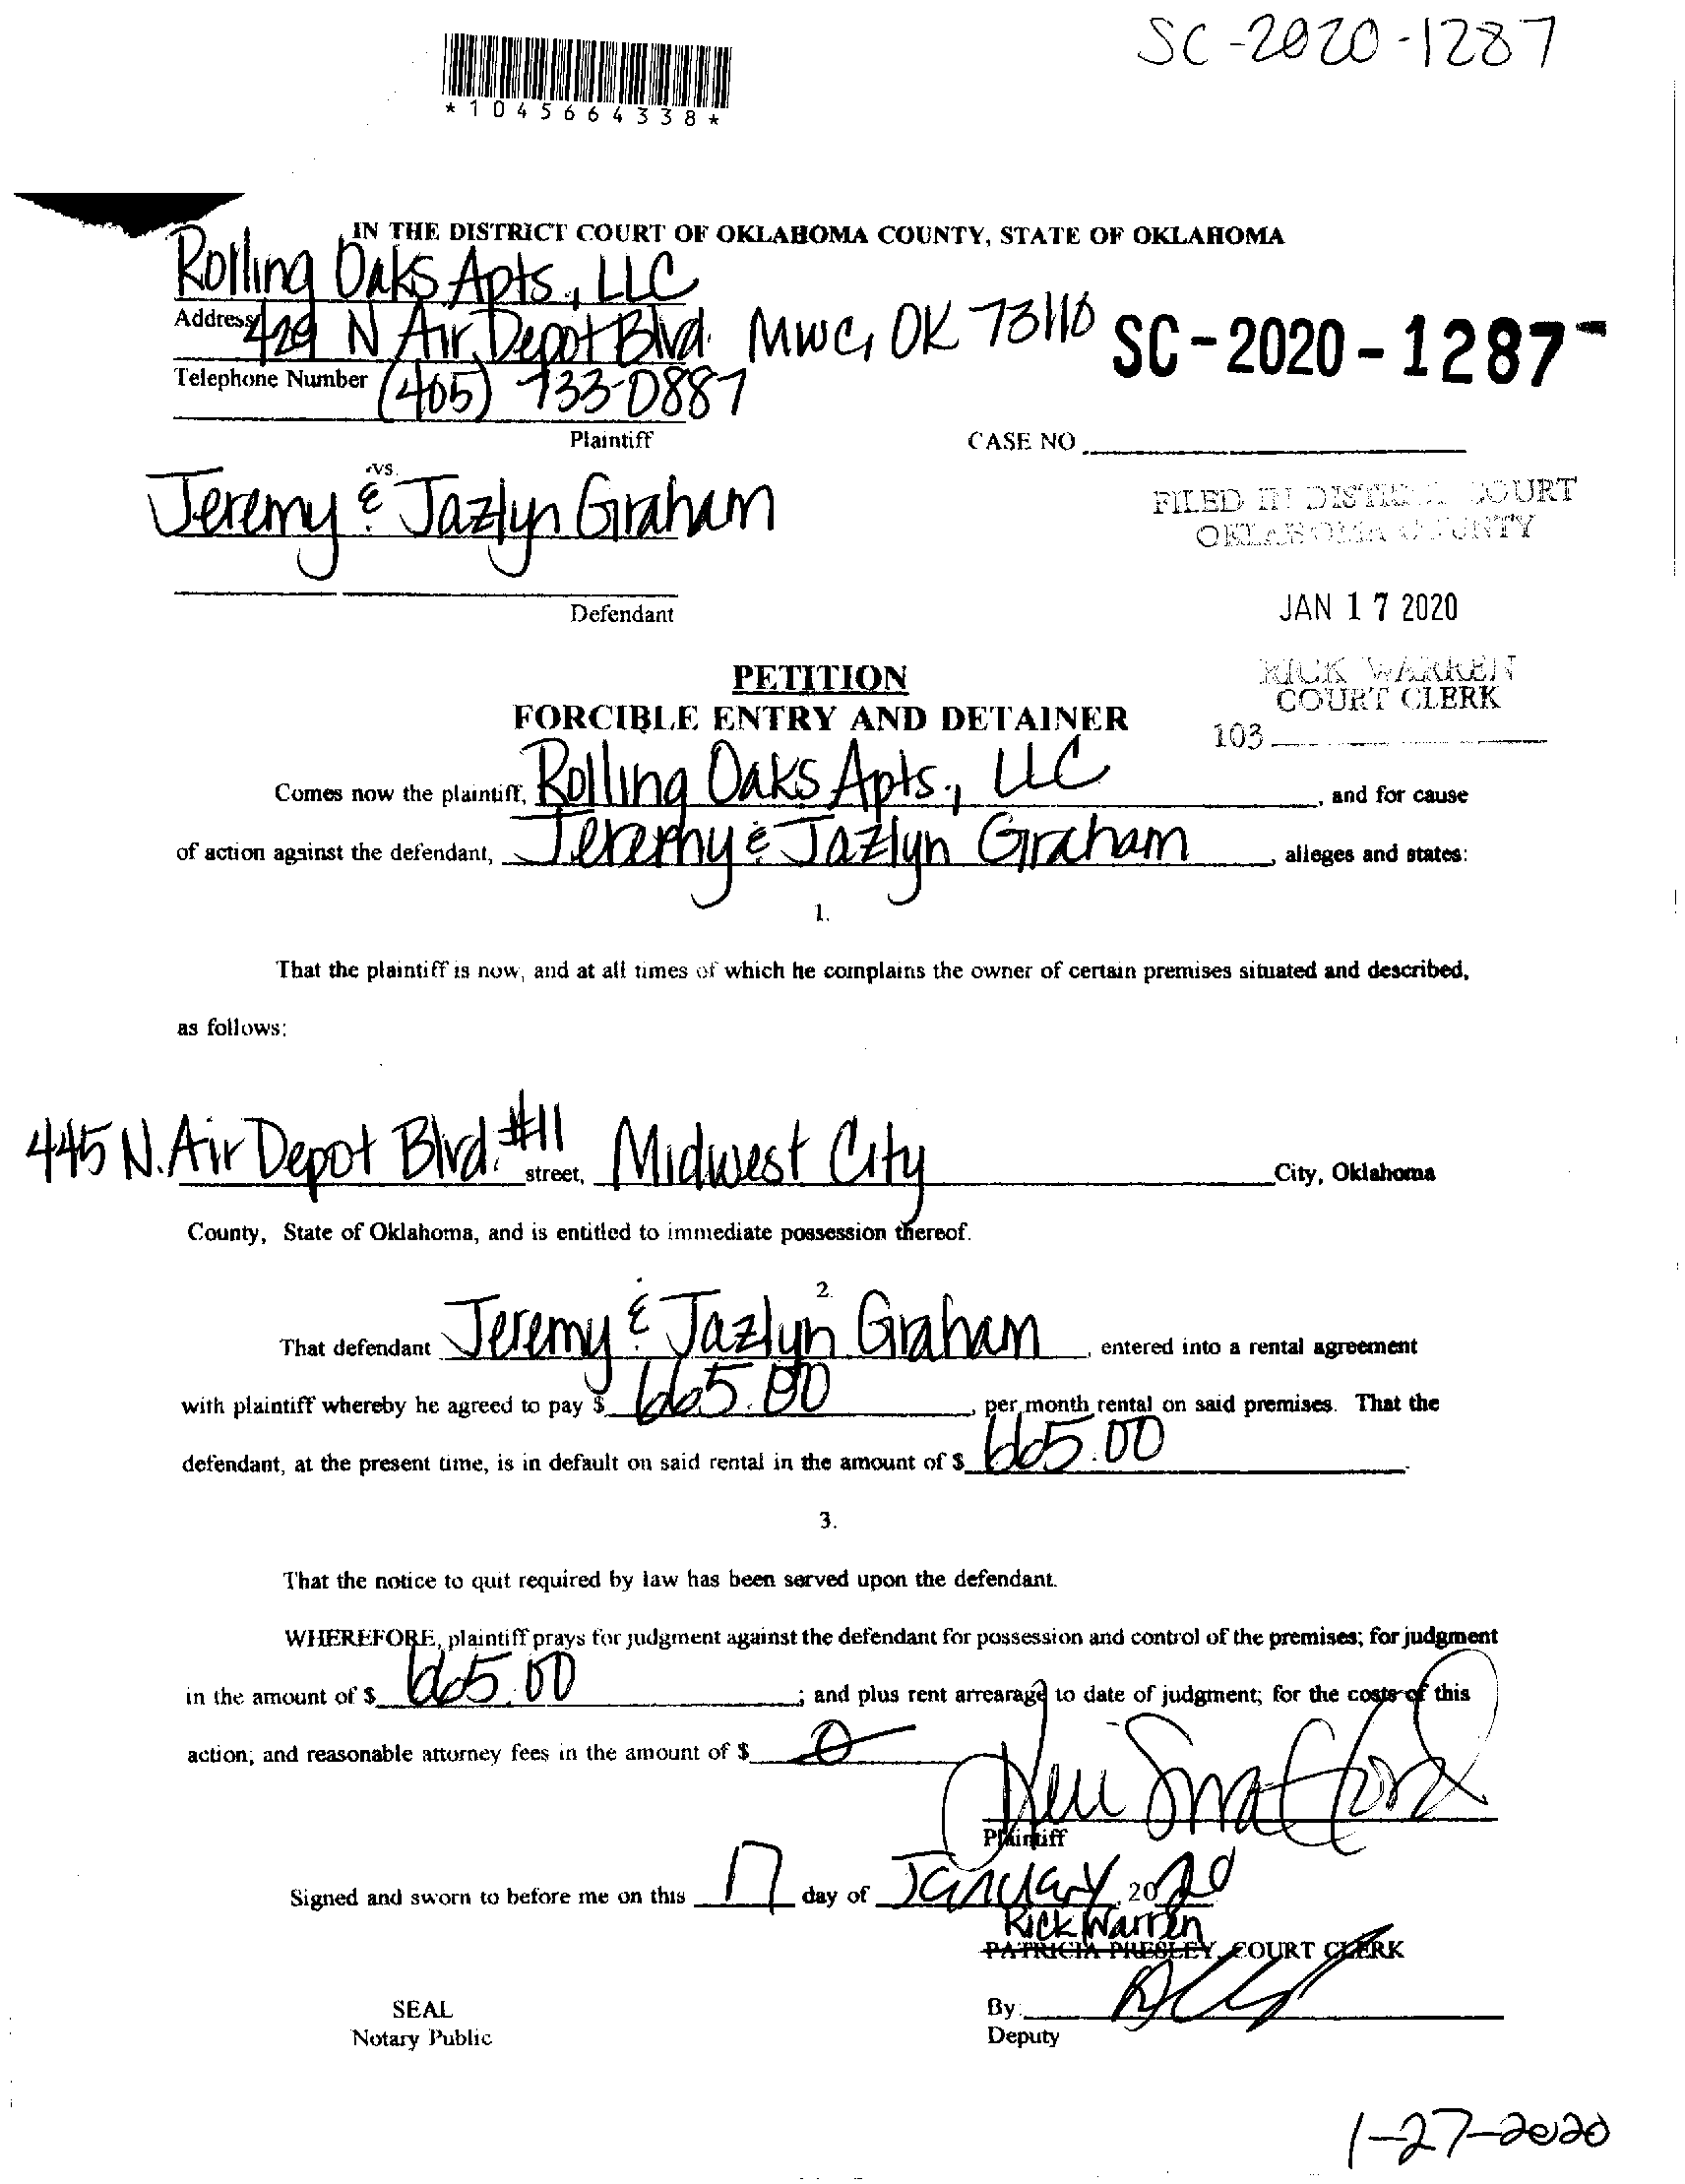 SC-2020-1287
*1045664338*
IN THE DISTRICT COURT OF OKLAHOMA COUNTY, STATE OF OKLAHOMA
Rolling Oaks Apts., LLC
Address 429 N Air Depot Blvd. MWC, OK 73110
SC-2020-1287-
Telephone Number (405) 733-0887
Plaintiff
CASE NO
vs.
Jeremy & Jazlyn Graham
FILED IN DISTRICT COURT
OKLAHOMA COUNTY
Defendant
JAN 17 2020
PETITION
RICK WARREN
COURT CLERK
FORCIBLE ENTRY AND DETAINER
103
Comes now the plaintiff, Rolling Oaks Apts., LLC, and for cause
of action against the defendant, Jeremy & Jazlyn Graham, alleges and states:
1.
That the plaintiff is now, and at all times of which he complains the owner of certain premises situated and described,
as follows:
445 N. Air Depot Blvd. #11 street, Midwest City City, Oklahoma
County, State of Oklahoma, and is entitled to immediate possession thereof.
2.
That defendant Jeremy & Jazlyn Graham, entered into a rental agreement
with plaintiff whereby he agreed to pay $ 665.00, per month rental on said premises. That the
defendant, at the present time, is in default on said rental in the amount of $ 665.00.
3.
That the notice to quit required by law has been served upon the defendant.
WHEREFORE, plaintiff prays for judgment against the defendant for possession and control of the premises; for judgment
in the amount of $ 665.00; and plus rent arrearage to date of judgment; for the costs of this
action; and reasonable attorney fees in the amount of $ 0
Plaintiff
Signed and sworn to before me on this 17 day of January, 2020
Rick Warren
PATRICIA PRESLEY, COURT CLERK
SEAL
By:
Notary Public
Deputy
1-27-2020